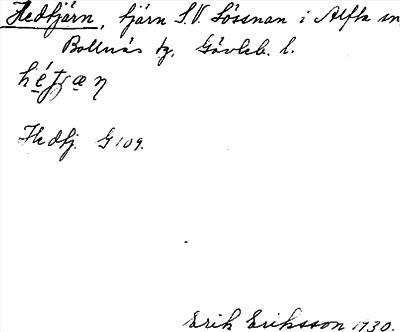 Hedtjärn, tjärn S.V. Lössnan i Alfta sn
Bollnäs tg. Gävleb. l.
Hedtj. G 109.
Erik Eriksson 1930.